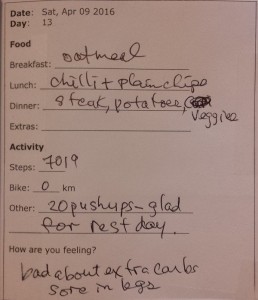 Date: Sat, Apr 09 2016
Day: 13
Food
Breakfast: oatmeal
Lunch: chilli + plain chips
Dinner: steak, potatoes,
veggies
Extras:
Activity
Steps: 7019
Bike: 0 km
Other: 20 pushups - glad
for rest day.
How are you feeling?
bad about extra carbs
sore in legs